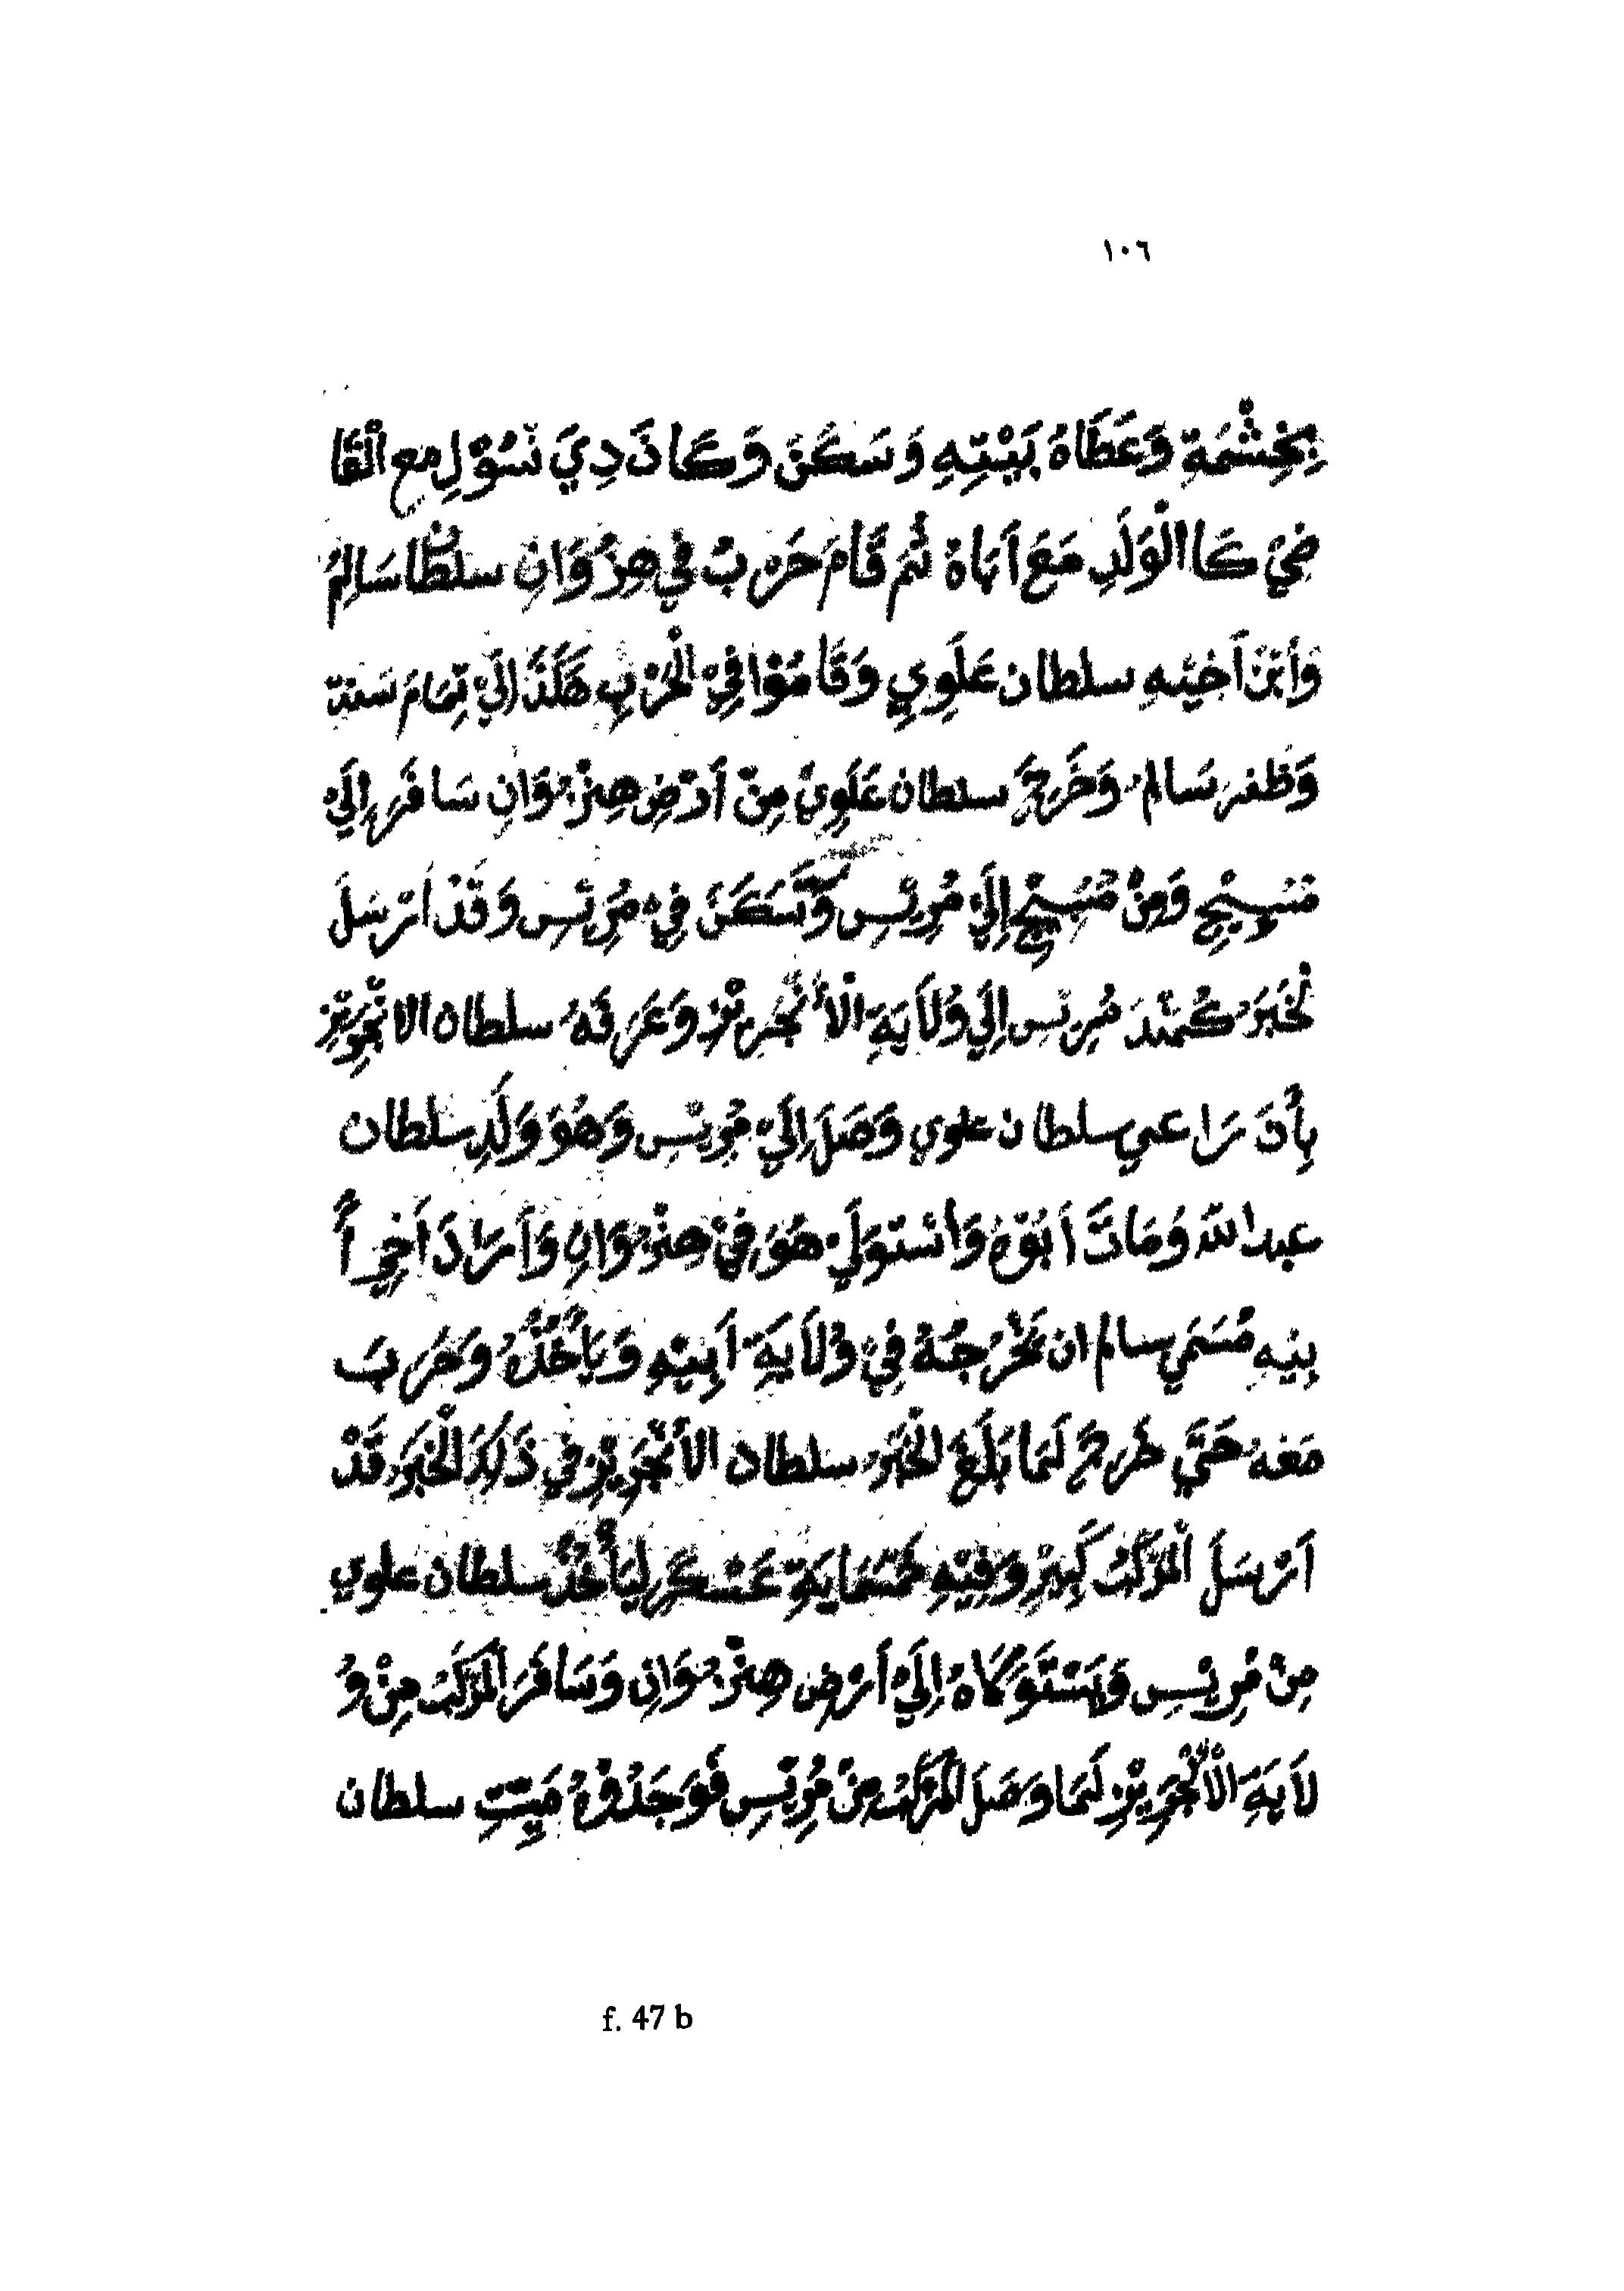 ١٠٦
بِخِشْمَةِ وَعَطَاهُ بَيْتِهِ وَسَكَنَ وَكَانَ دِيَ نَسُوْلِ مع الْقَا
ضِيْ كَا الْوَلَدِ مَعَ اَبَاهُ ثُمَّ قَامَ حَرْبُ فِي هِنْزُوَانِ سلطْا سَالِمُ
وَاَبْنَ اَخِيْهِ سلطان عَلَوِي وَقَامُوْا فِيْ الْحَرْبِ هَكَذَا اِلَيْ تِمَامَ سَنة
وَظفر سَالم وَخَرَجَ سلطان عَلَوِيْ مِنْ اَرْضِ هِنْزُوَانِ سَافَرِ اِلَيْ
مُسِنْجِ وَمِنْ مُسِنْجِ اِلَيْ مُرِيْسِ وَسَكَنَ فِيْ مُرِيْسِ وَقَدْ اَرْسَلَ
لْخَبَرَ كُمَنْدَ مُرِيْسِ اِلَيْ وُلاَيَةِ الْاَنْجَرِيْزِ وَعَرَفَهُ سلطان الانْجَرِيْزِ
بِاُنَ رَاعي سلطان علوي وَصَلَ اِلَيْ مُرِيْسِ وَهُوَ وَلَدِ سلطان
عبد الله وُمَاتَ اَبُوْهُ وَاسْتَوَلَيْ هُوَ فِيْ هِنْزُوَانِ وَاَرَادَ اَخِيْ اَ
بِيْهِ مُسَمَيْ سالم ان يَخْرُجُهُ فِيْ وُلاَيَةِ اَبِيْهِ وَيَاْخُذُهُ وَحَرَبَ
مَعَهُ حَتَّي خَرجَ لَمَا بَلَغَ الْخَبَرَ سلطان الاَنْجَرِيْزِ فِي ذَلِكَ الْخَبَرِ قَدْ
اَرْسَلَ الْمَرْكَبُ كَبِيْرِ وَفِيْهِ خَمْسَمَايَةِ عَسْكَرِ لِيَاْخُذُ سلطان علوي
مِنْ مُرِيْسِ وَيَسْتَوَكَاهُ اِلَيْ اَرْضِ هِنْزُوَانِ وَسَافَرَ الْمَرْكَبُ مِنْ وُ
لاَيَةِ الْاَنْجَرِيْزِ لَمَا وَصَلَ الْمَرْكَبُ مِنْ مُرِيْسِ فَوَجَدُوْهُ مَيِّتِ سلطان
f. 47 b